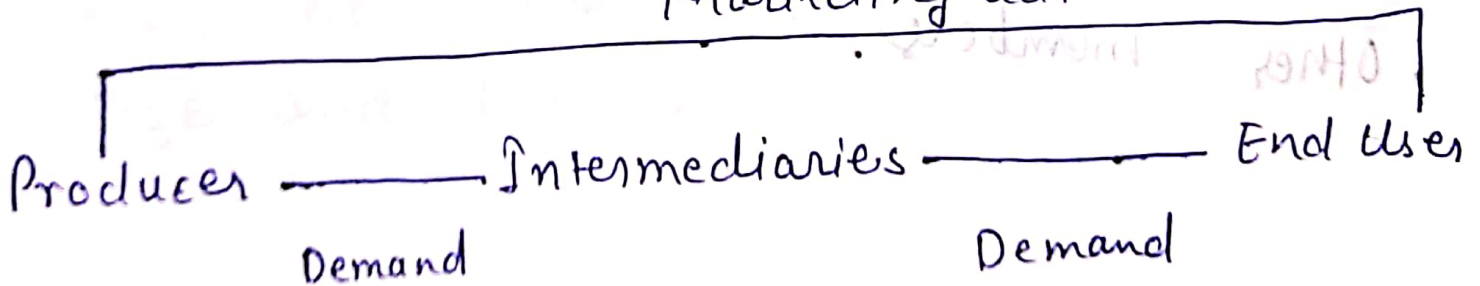 Producer Intermediaries End User
Demand Demand